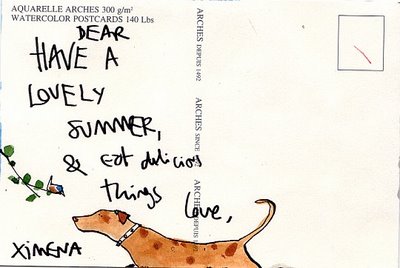 AQUARELLE ARCHES 300 g/m²
WATERCOLOR POSTCARDS 140 Lbs
DEAR
HAVE A
LOVELY
SUMMER,
& Eat delicious
things
Love,
XIMENA
ARCHES DEPUIS 1492
ARCHES SINCE
ARCHES DEPUIS